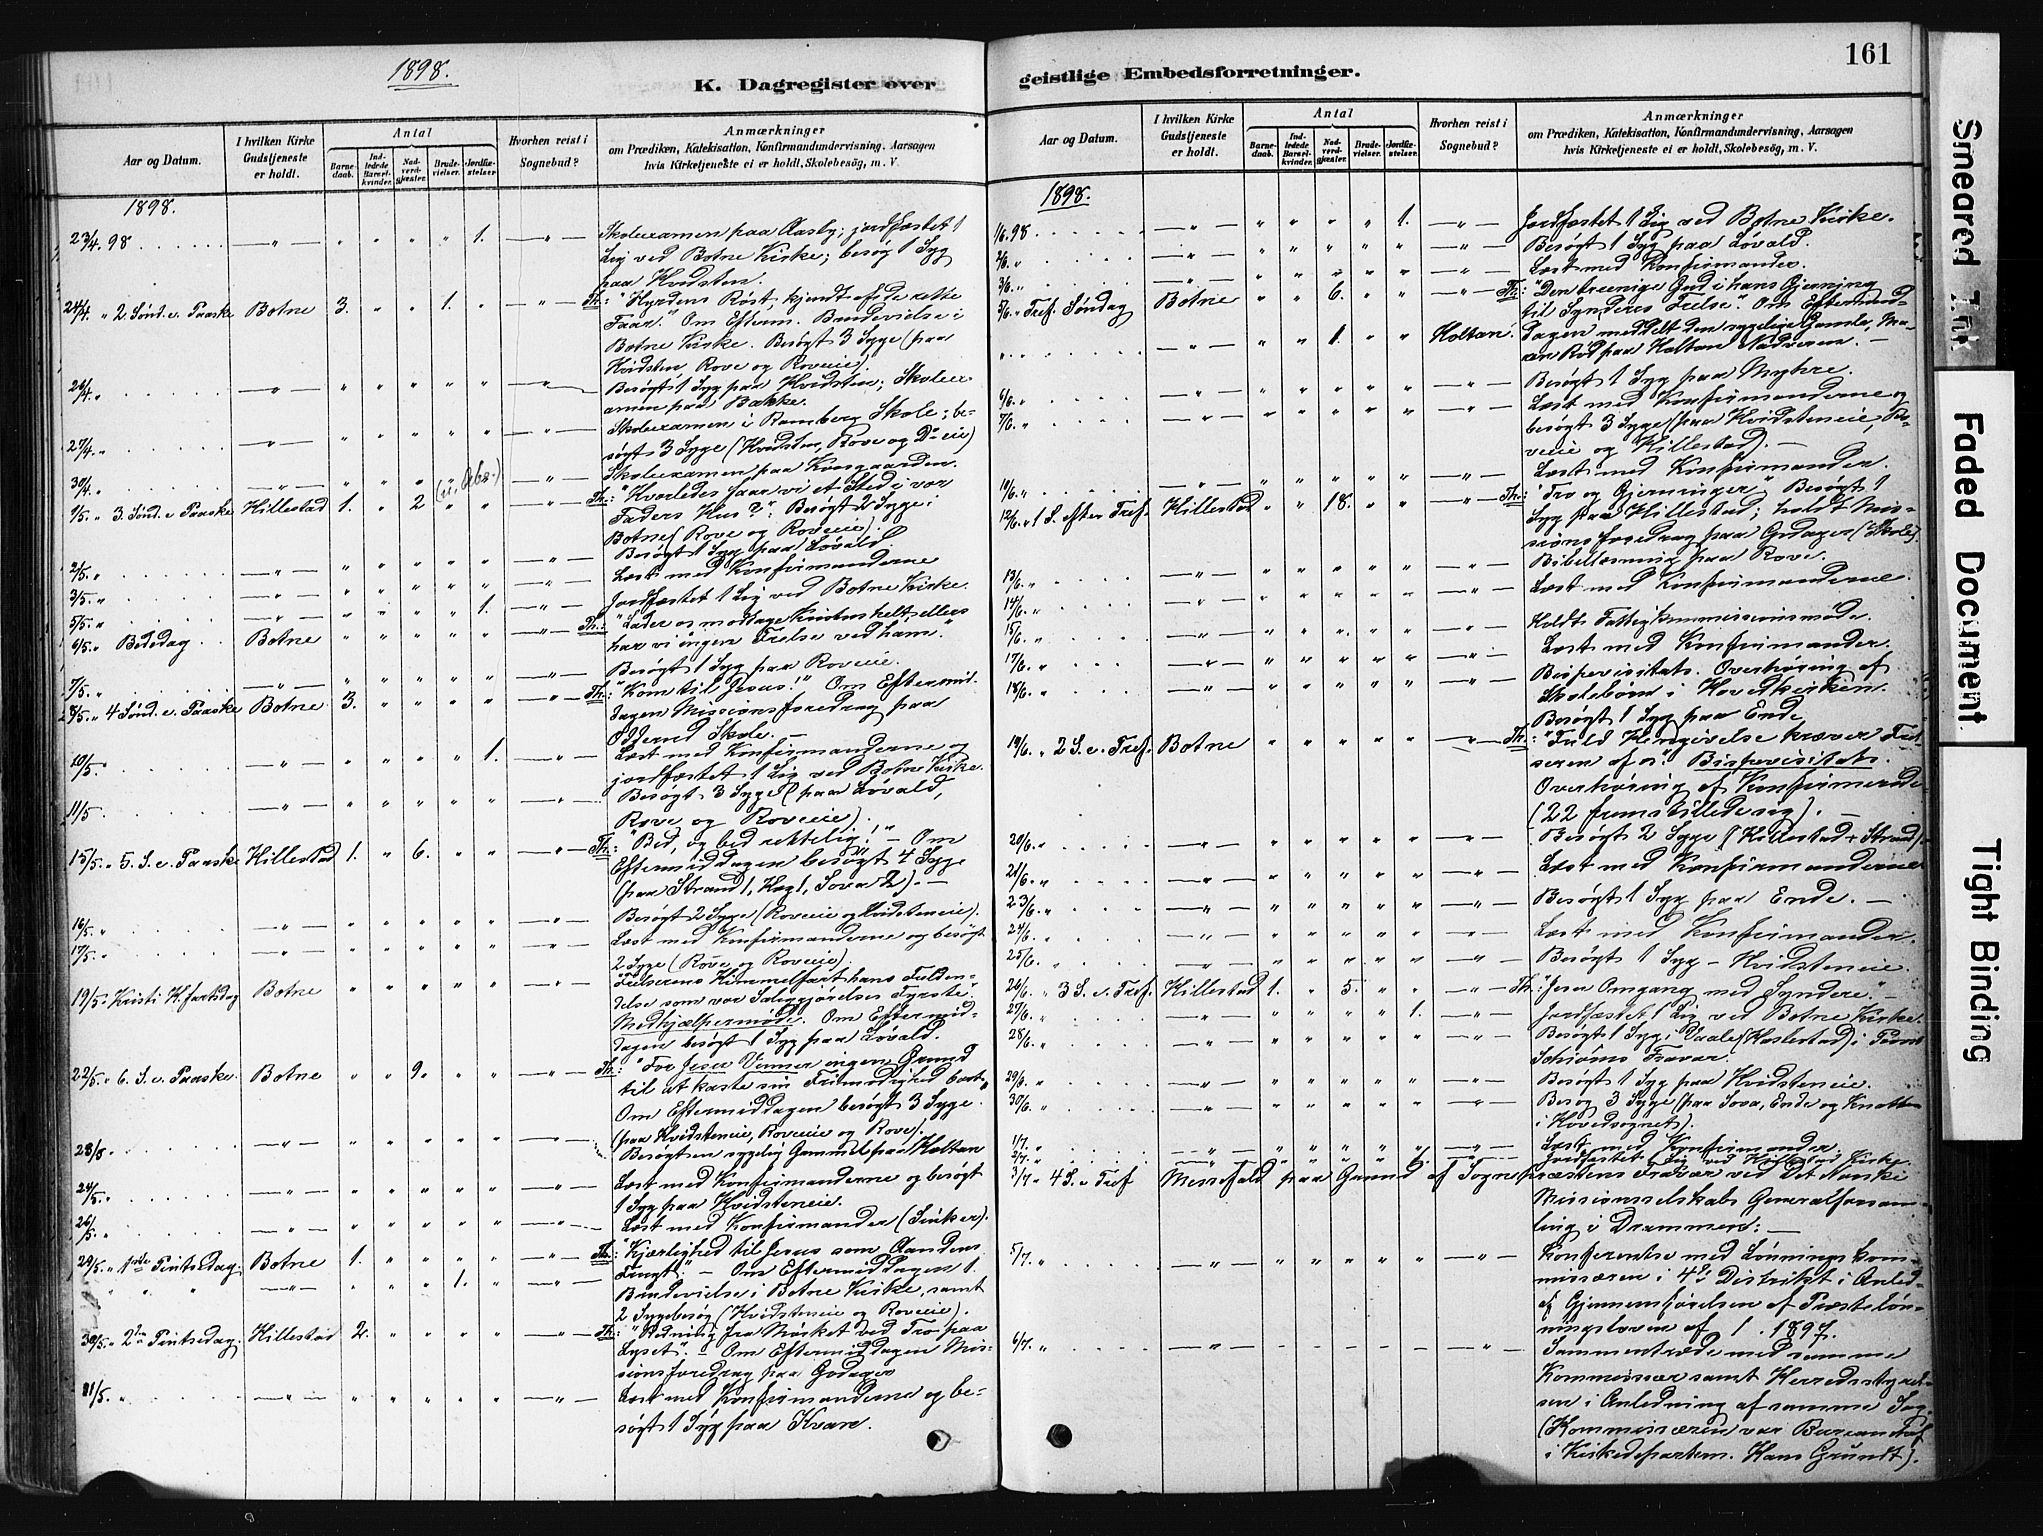 1898.
K. Dagregister over
Aar og Datum.
I hvilken Kirke Gudstjeneste er holdt.
Antal
Barnedaab.
Indledede Barselkvinder.
Nadverdgjæster.
Brudevielser.
Jordfæstelser.
Hvorhen reist i Sognebud?
Anmærkninger
om Prædiken, Katekisation, Konfirmandundervisning, Aarsagen
hvis Kirketjeneste ei er holdt, Skolebesøg, m. V.
1898.
23/4 98 — " — " " " " 1. — " — Skoleexamen paa Aasby; jordfæstet 1
Lig ved Botne Kirke; besøg 1 Syg
paa Hvidsten.
24/4. " 2 Sønd. e. Paaske Botne 3. " " 1. " — " — Th: "Hyrdens Røst kjendt af de rette
Faar." Om Efterm. Brudevielse i
Botne Kirke. Besøgt 3 Syge (paa
Hvidsten, Rove og Roveeie).
26/4. " — " — " " " " " — " — Besøgt 1 Syg paa Hvidsten; Skoleex
amen paa Bakke.
27/4. " — " — " " " " " Skoleexamen i Ramberg Skole; be-
søgt 3 Syge (Hvidsten, Rove og Do eie)
30/4. " — " — " " " — " — Skoleexamen paa Korsgaarden.
1/5. " 3. Sønd. e. Paaske Hillestad 1. " 2 " " — " — Th: "Hvorledes faar vi et Sted i vor
Faders Hus?". Besøgt 2 Syge i
Botne (Rove og Roveeie).
2/5. " — " — " " " " " — " — Besøgt 1 Syg paa Løvald.
3/5. " — " — " " " " " — " — Læst med Konfirmanderne
5/5. " — " — " " " " 1. — " — Jordfæstet 1 Lig ved Botne Kirke.
6/5. " Bededag Botne " " " " " — " — Th: "Lader os modtage Kristus helt, ellers
har vi ingen Frelse ved ham."
7/5. " — " — " " " " " — " — Besøgt 1 Syg paa Roveeie.
8/5. " 4 Sønd. e. Paaske Botne 3. " " " " — " — Th: "Kom til Jesus!" Om Eftermid-
dagen Missionsforedrag paa
Skole. —
10/5. " — " — " " " " 1. — " — Læst med Konfirmanderne og
jordfæstet 1 Lig ved Botne Kirke.
11/5. — " — " " " " " — " — Besøgt 3 Syge (paa Løvald,
Rove og Roveeie).
15/5. " 5. S. e. Paaske Hillestad 1. " 6. " " — " — Th: "Bed, og bed rettelig!" — Om
Eftermiddagen besøgt 4 Syge
(paa Strand 1, Hag 1, Sova 2). —
16/5. " — " — " " " " " — " — Besøgt 2 Syge (Roveeie og Hvidsteneie).
17/5. " — " — " " " " " — " — Læst med Konfirmanderne og besøgt
2 Syge (Rove og Roveeie).
19/5. Kristi H.fartsdag Botne " " " " " — " — Frelserens Himmelfart hans Fulden-
delse som vor Saliggjørelses Fyrste.
Medhjælpermøde. Om Eftermid-
dagen besøgt 1 Syg paa Løvald.
22/5. " 6. S. e. Paaske. Botne " " 9. " " — " — Th: "For Jesu Venner ingen Grund
til at kaste sin Frimodighed bort."
Om Eftermiddagen besøgt 3 Syge.
(paa Hvidsteneie, Roveeie og Rove).
23/5. — " — " " " " " — " — Besøgt en sygelig Gammel paa Holtan
24/5. " — " — " " " " " — " — Læst med Konfirmanderne og besøgt
1 Syg paa Hvidsteneie.
26/5. " — " — " " " " " — " — Læst med Konfirmander (Sinker).
29/5. " 1ste Pintsedag. Botne 1. " " " " — " — Th: "Kjærlighed til Jesus som Aandens
Frugt." — Om Eftermiddagen 1.
" " " — " — " " " 1. " — " — Brudevielse i Botne Kirke, samt
2 Sygebesøg (Hvidsteneie og Roveeie).
30/5. " 2den Pintsedag. Hillestad 2. " " " " — " — Th: "Redning fra Mørket ved Tro paa
Lyset." — Om Eftermiddagen Mis-
sionsforedrag paa Godager
31/5. " — " — " " " " " — " — Læst med Konfirmanderne og be-
søgt 1 Syg paa Kvare.
161
geistlige Embedsforretninger.
Aar og Datum.
I hvilken Kirke Gudstjeneste er holdt.
Antal
Barnedaab.
Indledede Barselkvinder.
Nadverdgjæster.
Brudevielser.
Jordfæstelser.
Hvorhen reist i Sognebud?
Anmærkninger
om Prædiken, Katekisation, Konfirmandundervisning, Aarsagen
hvis Kirketjeneste ei er holdt, Skolebesøg, m. V.
1898.
1/6. 98 — " — " " " " 1. — " — Jordfæstet 1 Lig ved Botne Kirke.
2/6. " — " — " " " " " — " — Besøgt 1 Syg paa Løvald.
3/6. " — " — " " " " " — " — Læst med Konfirmander.
5/6. " Tref. Søndag Botne " " 6. " " — " — Th: "Den treenige Gud i hans Gjerning
til Synderes Frelse". Om Eftermid-
" — " — " " 1. " " Holtan. dagen meddelt den sygelige Gamle, Ma-
ren Rød paa Holtan Nadveren. —
6/6. " — " — " " " " " — " — Besøgt 1 Syg paa Myhre.
7/6. " — " — " " " " " — " — Læst med Konfirmanderne og
besøgt 3 Syge (paa Hvidsteneie, Ro-
veeie og Hillestad). —
10/6. " — " — " " " " " — " — Læst med Konfirmander.
12/6. " 1 S. efter Tref. Hillestad " " 18. " " — " — Th: "Tro og Gjerninger". Besøgt 1
Syg paa Hillestad; holdt Mis-
sionsforedrag paa Godager (Skole).
13/6. " — " — " " " " " — " — Bibellæsning paa Rove.
14/6. " — " — " " " " " — " — Læst med Konfirmanderne.
15/6. " — " — " " " " " — " — Holdt Fattigkommissionsmøde.
17/6. " — " — " " " " " — " — Læst med Konfirmander.
18/6. " — " — " " " " " — " — Bispevisitats. Overhøring af
Skolebørn i Hovedkirken.
Besøgt 1 Syg paa Ende
19/6. " 2 S. e. Tref. Botne " " " " " — " — Th: "Fuld Hengivelse kræver Frel-
seren af os". Bispevisitats.
Overhøring af Konfirmerede
(22 fremstillede sig). —
20/6. " — " — " " " " " — " — Besøgt 2 Syge (Hillestad + Strand).
21/6. " — " — " " " " " — " — Læst med Konfirmanderne
23/6. " — " — " " " " " — " — Besøgt 1 Syg paa Ende. —
24/6. — " — " " " " " — " — Læst med Konfirmander.
25/6. " — " — " " " " " — " — Besøgt 1 Syg — Hvidsteneie.
26/6. " 3 S. e. Tref. Hillestad 1. " 5. " " — " — Th: "Jesu Omgang med Syndere." —
27/6. " — " — " " " " 1. — " — Jordfæstet 1 Lig ved Botne Kirke.
28/6. " — " — " " " " " — " — Besøgt 1 Syg i Vaale (Haslestad) i Provst
Schiøns Fravær.
29/6. " — " — " " " " " — " — Besøgt 1 Syg paa Hvidsteneie.
30/6. " — " — " " " " " — " — Besøg 3 Syge (paa Sova, Ende og Knatten
i Hovedsognet).
1/7. " — " — " " " " " — " — Læst med Konfirmander.
2/7. " — " — " " " " 1. — " — Jordfæstet 1 Lig ved Hillestad Kirke
3/7. " 4 S. e Tref Messefald paa Grund af Sognepræstens Fravær ved Det Norske
Missionsselskabs Generalforsam-
ling i Drammen: —
5/7. " — " — " " " " " — " — Konferentse med Lønningskom-
missæren i 4de Distrikt i Anled-
af Gjennemførelsen af Præsteløn-
ningsloven af 1897.
6/7. " — " — - - - - - - " - Sammentræde med samme
Kommissær samt Herredsstyrel-
sen i Anledning af samme Sag.
(Kommissæren var Bureauchef
i Kirkedepartem. Hans Grundt).
Smeared Ink
Faded Document
Tight Binding